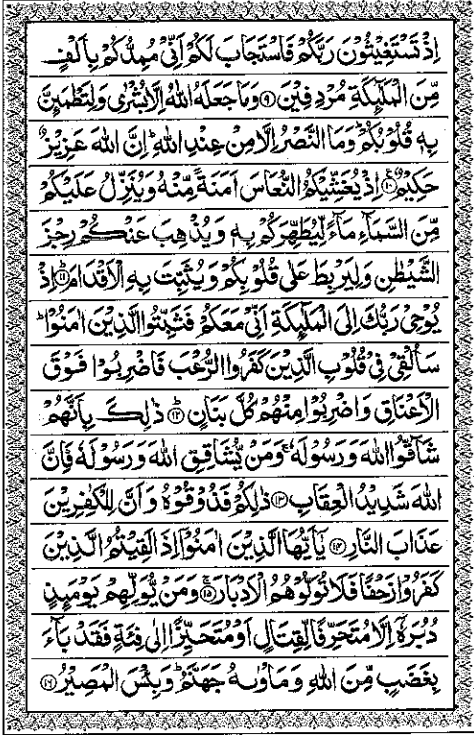 اِذۡ تَسۡتَغِيۡثُوۡنَ رَبَّكُمۡ فَاسۡتَجَابَ لَكُمۡ اَنِّىۡ مُمِدُّكُمۡ بِاَلۡفٍ
مِّنَ الۡمَلٰٓٮِٕكَةِ مُرۡدِفِيۡنَ ﴿۹﴾ وَمَا جَعَلَهُ اللّٰهُ اِلَّا بُشۡرٰى وَلِتَطۡمَٮِٕنَّ
بِهٖ قُلُوۡبُكُمۡ‌ؕ وَمَا النَّصۡرُ اِلَّا مِنۡ عِنۡدِ اللّٰهِ‌ؕ اِنَّ اللّٰهَ عَزِيۡزٌ
حَكِيۡمٌ ﴿۱۰﴾ اِذۡ يُغَشِّيۡكُمُ النُّعَاسَ اَمَنَةً مِّنۡهُ وَيُنَزِّلُ عَلَيۡكُمۡ
مِّنَ السَّمَآءِ مَآءً لِّيُطَهِّرَكُمۡ بِهٖ وَيُذۡهِبَ عَنۡكُمۡ رِجۡزَ
الشَّيۡطٰنِ وَلِيَرۡبِطَ عَلٰى قُلُوۡبِكُمۡ وَيُثَبِّتَ بِهِ الۡاَقۡدَامَؕ ﴿۱۱﴾ اِذۡ
يُوۡحِىۡ رَبُّكَ اِلَى الۡمَلٰٓٮِٕكَةِ اَنِّىۡ مَعَكُمۡ فَثَبِّتُوا الَّذِيۡنَ اٰمَنُوۡا‌ؕ
سَاُلۡقِىۡ فِىۡ قُلُوۡبِ الَّذِيۡنَ كَفَرُوا الرُّعۡبَ فَاضۡرِبُوۡا فَوۡقَ
الۡاَعۡنَاقِ وَاضۡرِبُوۡا مِنۡهُمۡ كُلَّ بَنَانٍؕ ﴿۱۲﴾ ذٰلِكَ بِاَنَّهُمۡ
شَآقُّوا اللّٰهَ وَرَسُوۡلَهٗ‌ۚ وَمَنۡ يُّشَاقِقِ اللّٰهَ وَرَسُوۡلَهٗ فَاِنَّ
اللّٰهَ شَدِيۡدُ الۡعِقَابِ ﴿۱۳﴾ ذٰلِكُمۡ فَذُوۡقُوۡهُ وَاَنَّ لِلۡكٰفِرِيۡنَ
عَذَابَ النَّارِ ﴿۱۴﴾ يٰۤاَيُّهَا الَّذِيۡنَ اٰمَنُوۡۤا اِذَا لَقِيۡتُمُ الَّذِيۡنَ
كَفَرُوۡا زَحۡفًا فَلَا تُوَلُّوۡهُمُ الۡاَدۡبَارَ‌ۚ ﴿۱۵﴾ وَمَنۡ يُّوَلِّهِمۡ يَوۡمَٮِٕذٍ
دُبُرَهٗۤ اِلَّا مُتَحَرِّفًا لِّقِتَالٍ اَوۡ مُتَحَيِّزًا اِلٰى فِئَةٍ فَقَدۡ بَآءَ
بِغَضَبٍ مِّنَ اللّٰهِ وَمَاۡوٰٮهُ جَهَنَّمُ‌ؕ وَبِئۡسَ الۡمَصِيۡرُ ﴿۱۶﴾